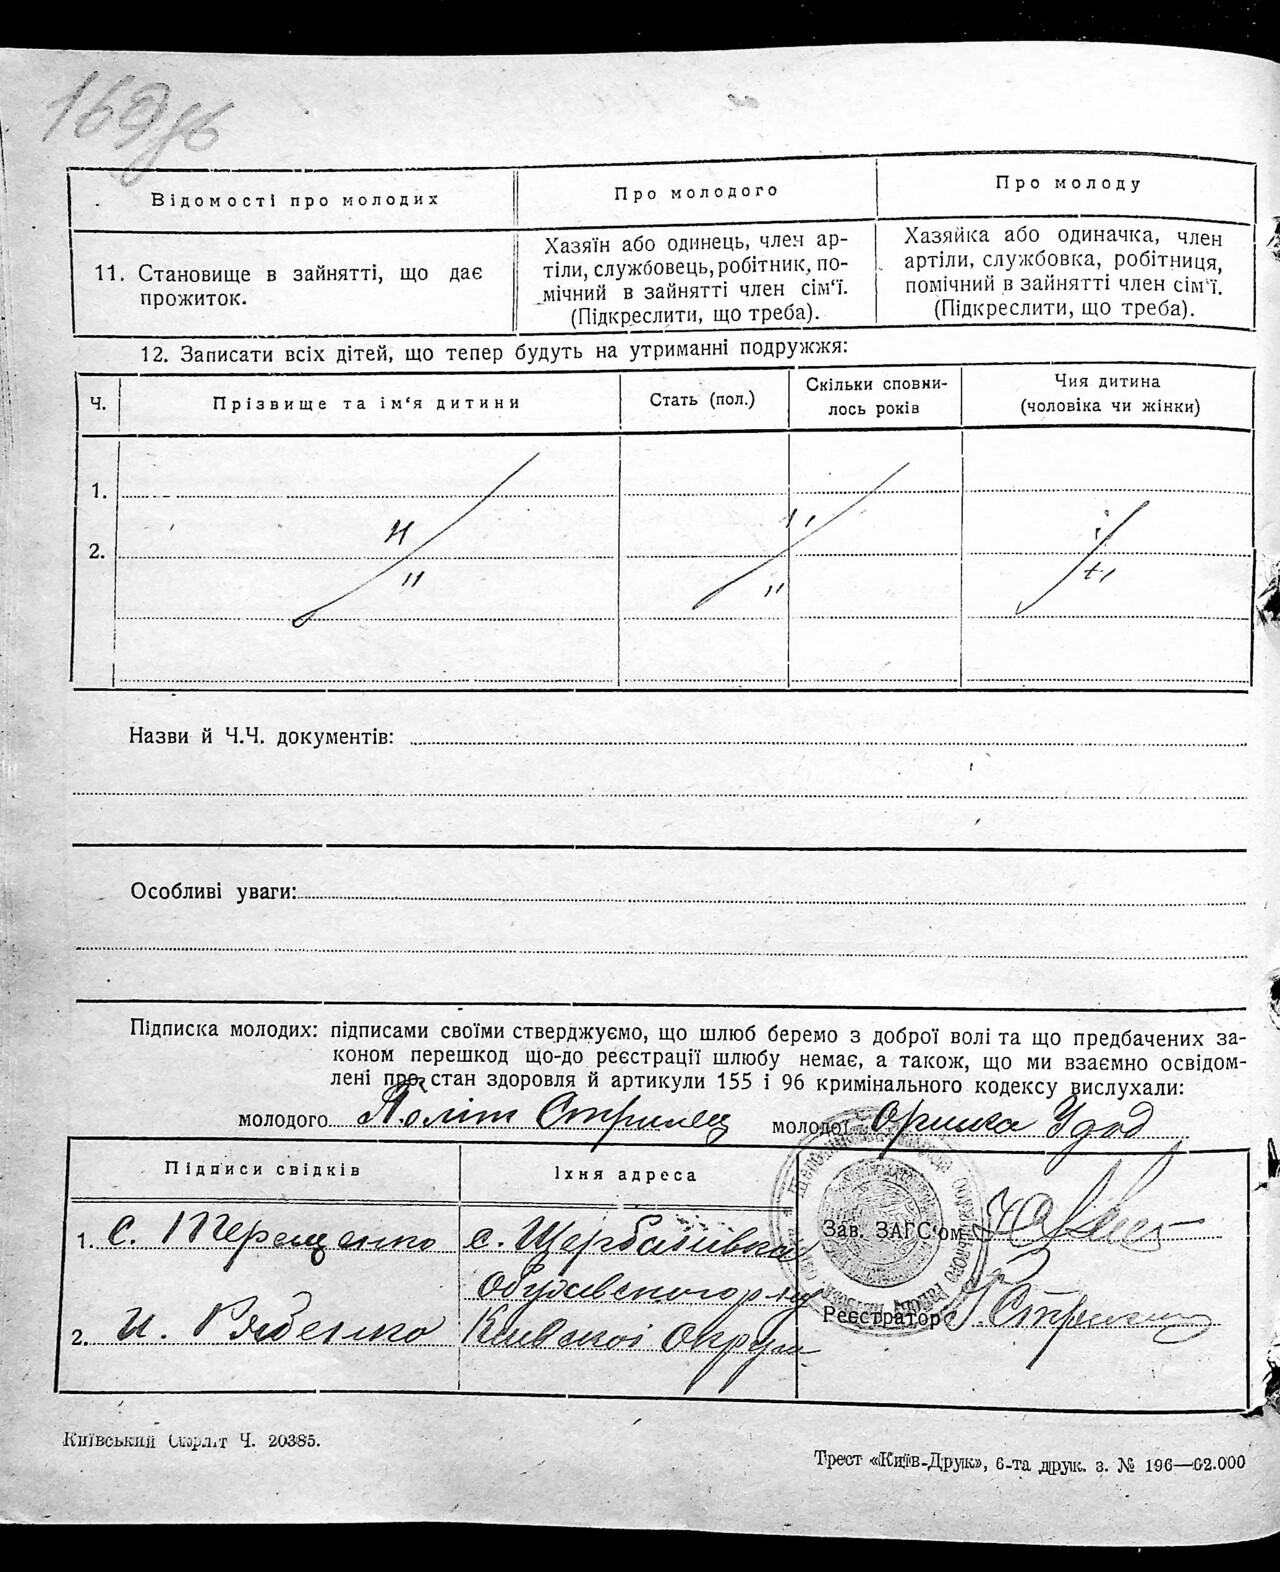 169 зв
Відомості про молодих
Про молодого
Про молоду
11. Становище в зайнятті, що дає
прожиток.
Хазяїн або одинець, член ар-
тіли, службовець, робітник, по-
мічний в зайнятті член сім'ї.
(Підкреслити, що треба).
Хазяйка або одиначка, член
артіли, службовка, робітниця,
помічний в зайнятті член сім'ї.
(Підкреслити, що треба).
12. Записати всіх дітей, що тепер будуть на утриманні подружжя:
Ч.
Прізвище та ім'я дитини
Стать (пол.)
Скільки сповни-
лось років
Чия дитина
(чоловіка чи жінки)
1.
2.
Назви й Ч.Ч. документів:
Особливі уваги:
Підписка молодих: підписами своїми стверджуємо, що шлюб беремо з доброї волі та що предбачених за-
коном перешкод що-до реєстрації шлюбу немає, а також, що ми взаємно освідом-
лені про стан здоровля й артикули 155 і 96 кримінального кодексу вислухали:
молодого Політ Стрилец молодої Оришка Удод
Підписи свідків
Їхня адреса
1. С. Терещенко
с. Щербанівка
Зав. ЗАГС'ом
Обухівского р-ну
2. И. Рябенко
Київскої Округи
Реєстратор
Київський Окрліт Ч. 20385.
Трест «Київ-Друк», 6-та друк. з. № 196—62.000